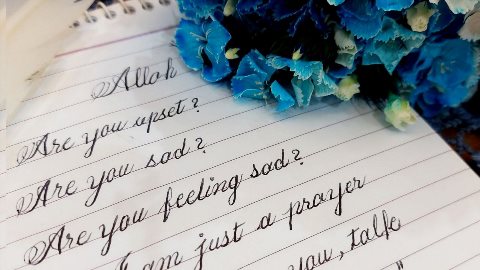 Allah
Are you upset?
Are you sad?
Are you feeling sad?
I am just a prayer
you, talk
"